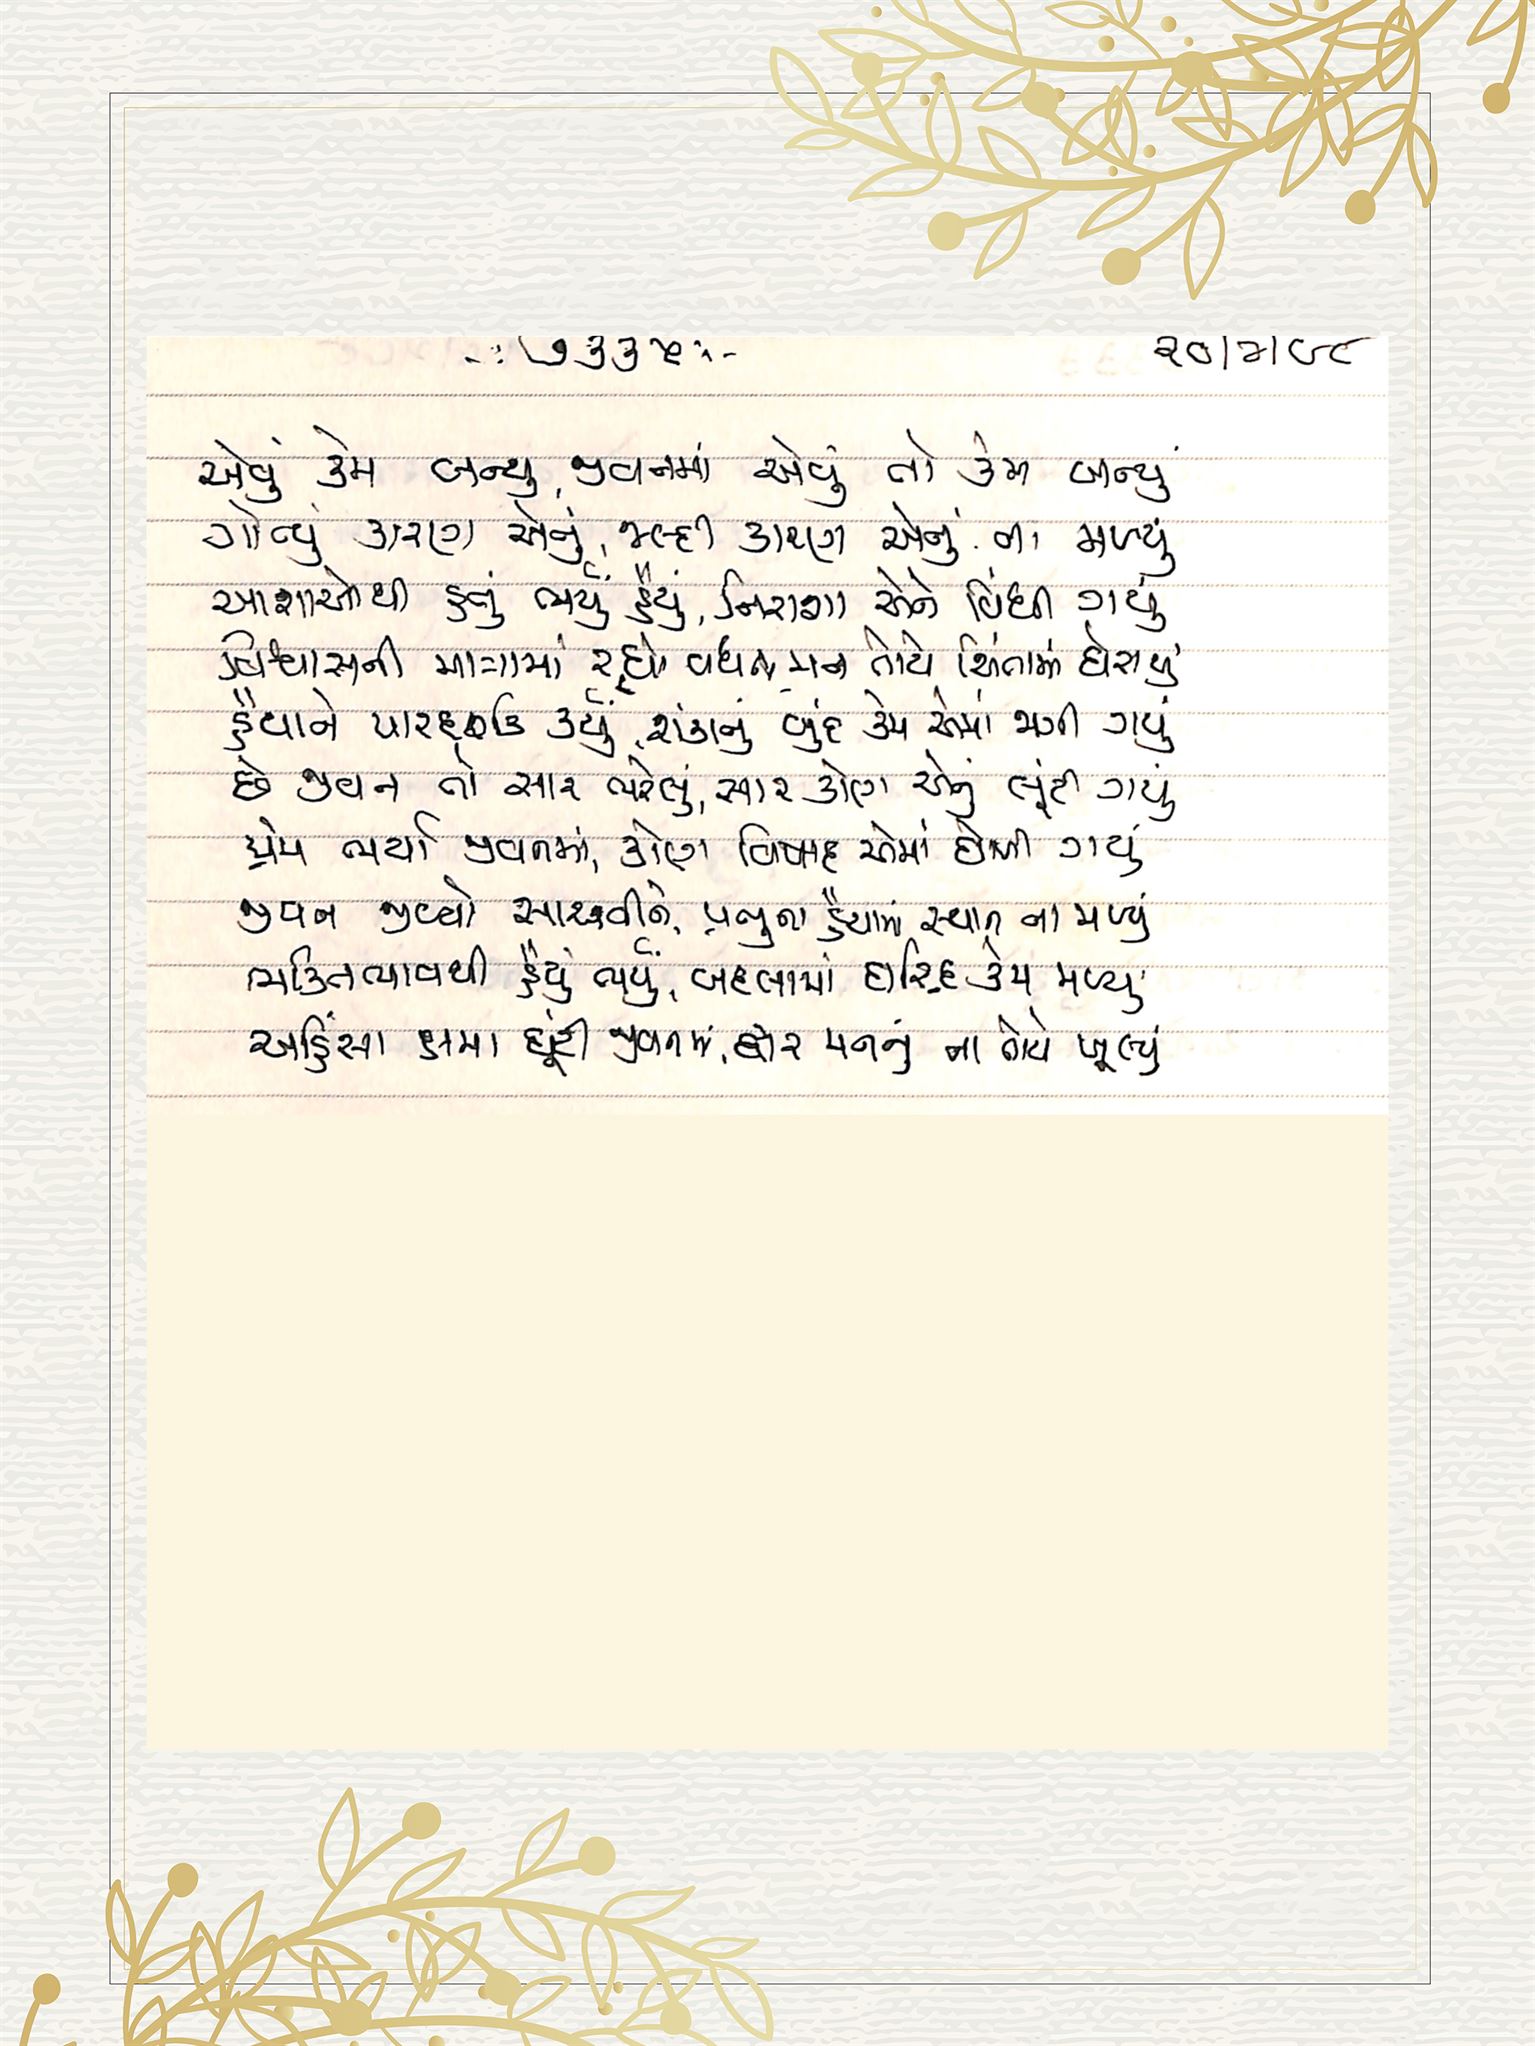 -: ૭૩૩૪ :- ૨૦/૪/૯૮
એવું કેમ બન્યુ, જીવનમાં એવું તો કેમ બન્યું
ગોત્યું કારણ એનું, જલ્દી કારણ એનું ના મળ્યું
આશાઓથી હતું ભર્યું હૈયું, નિરાશા એને વિંધી ગયું
વિશ્વાસની માત્રામાં રહ્યો વધતો મન તોયે ચિંતામાં ઘેરાયું
હૈયાને પારદર્શક કર્યું, શંકાનું બુંદ કેમ એમાં ભળી ગયું
છે જીવન તો સાર ભરેલું, સાર કોણ એનું લૂંટી ગયું
પ્રેમ ભર્યા જીવનમાં, કોણ વિષાદ એમાં ઘોળી ગયું
જીવન જીવ્યો સાચવીને, પ્રભુના હૈયામાં સ્થાન ના મળ્યું
ભક્તિભાવથી હૈયું ભર્યું, બદલામાં દારિદ્ર કેમ મળ્યું
અહિંસા ક્ષમા ઘૂંટી જીવનમાં, દ્વાર મનનું ના તોયે ખૂલ્યું